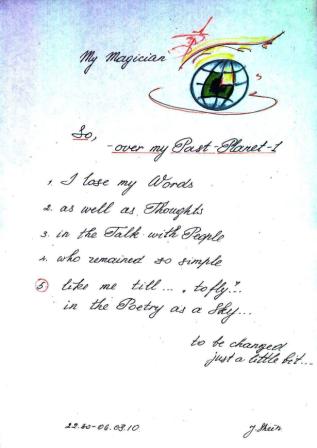 My Magician
So,
- over my Past-Planet-1
1. I lose my Words
2. as well as Thoughts
3. in the Talk with People
4. who remained so simple
5 like me till... "to fly"...
in the Poetry as a Sky...
to be changed
just a little bit...
22.20-06.09.10